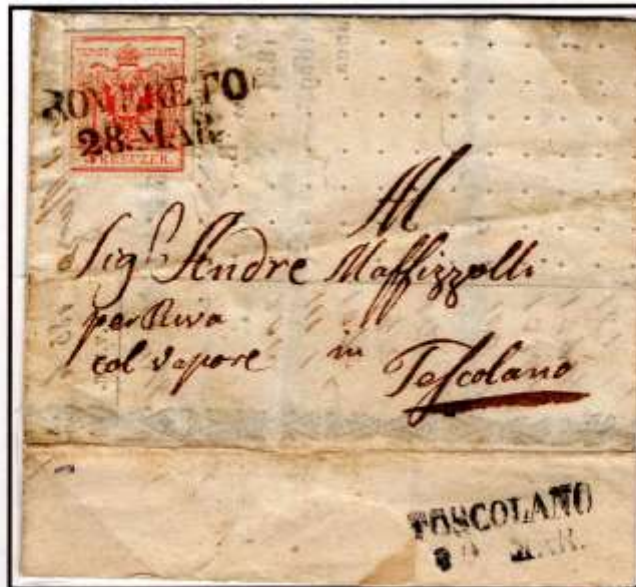 ROVERETO
28. MAR.
KREUZER.
Al
Sigr. Andre Maffizzolli
per Riva
col vapore in
Toscolano
TOSCOLANO
MAR.